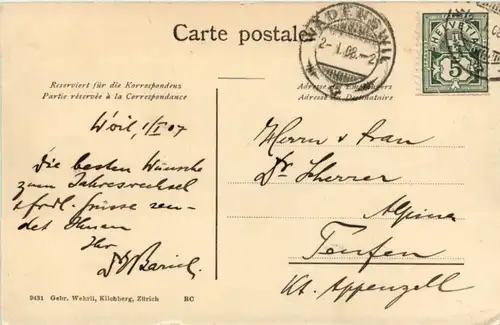 Carte postale
WÄDENSWIL
2. I. 08.-2
HELVETIA
5
Reserviert für die Korrespondenz
Partie réservée à la Correspondance
Adresse du Destinataire
W'wil, 1/I 07
Die besten Wünsche
zum Jahreswechsel
& frdl. Grüsse sen-
det Ihnen
Ihr
Herrn & Frau
Dr. Scherrer
Alpina
Teufen
Kt. Appenzell
9431 Gebr. Wehrli, Kilchberg, Zürich RC